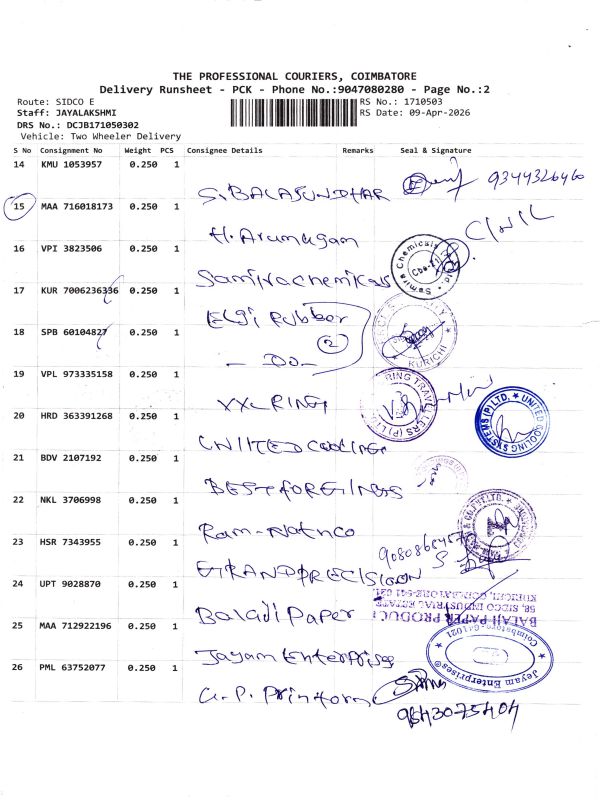 THE PROFESSIONAL COURIERS, COIMBATORE
Delivery Runsheet - PCK - Phone No.:9047080280 - Page No.:2
Route: SIDCO E
RS No.: 1710503
Staff: JAYALAKSHMI
RS Date: 09-Apr-2026
DRS No.: DCJB171050302
Vehicle: Two Wheeler Delivery
S No Consignment No Weight PCS Consignee Details Remarks Seal & Signature
14 KMU 1053957 0.250 1 S. BALASUNDHAR 9344326460
15 MAA 716018173 0.250 1 H. Arumugam
16 VPI 3823506 0.250 1 Samira chemicals
17 KUR 7006236336 0.250 1 Elgi Rubber
2
18 SPB 60104827 0.250 1 - Do -
KURICHI
19 VPL 973335158 0.250 1 XXL RING
RING TRAVELLERS (P) LTD.
20 HRD 363391268 0.250 1 UNITED COOLING
UNITED COOLING SYSTEMS (P) LTD.
21 BDV 2107192 0.250 1 BEST FORGINGS
22 NKL 3706998 0.250 1 Ram-Natnco
23 HSR 7343955 0.250 1 GRAND PRECISION
24 UPT 9028870 0.250 1 Balaji Paper
BALAJI PAPER PRODUCT
58, SIDCO INDUSTRIAL ESTATE
KURICHI, COIMBATORE-641 021.
25 MAA 712922196 0.250 1 Jayam Enterprises
Jeyam Enterprises®
Coimbatore-641021
26 PML 63752077 0.250 1 G.P. Printorm
9843075404